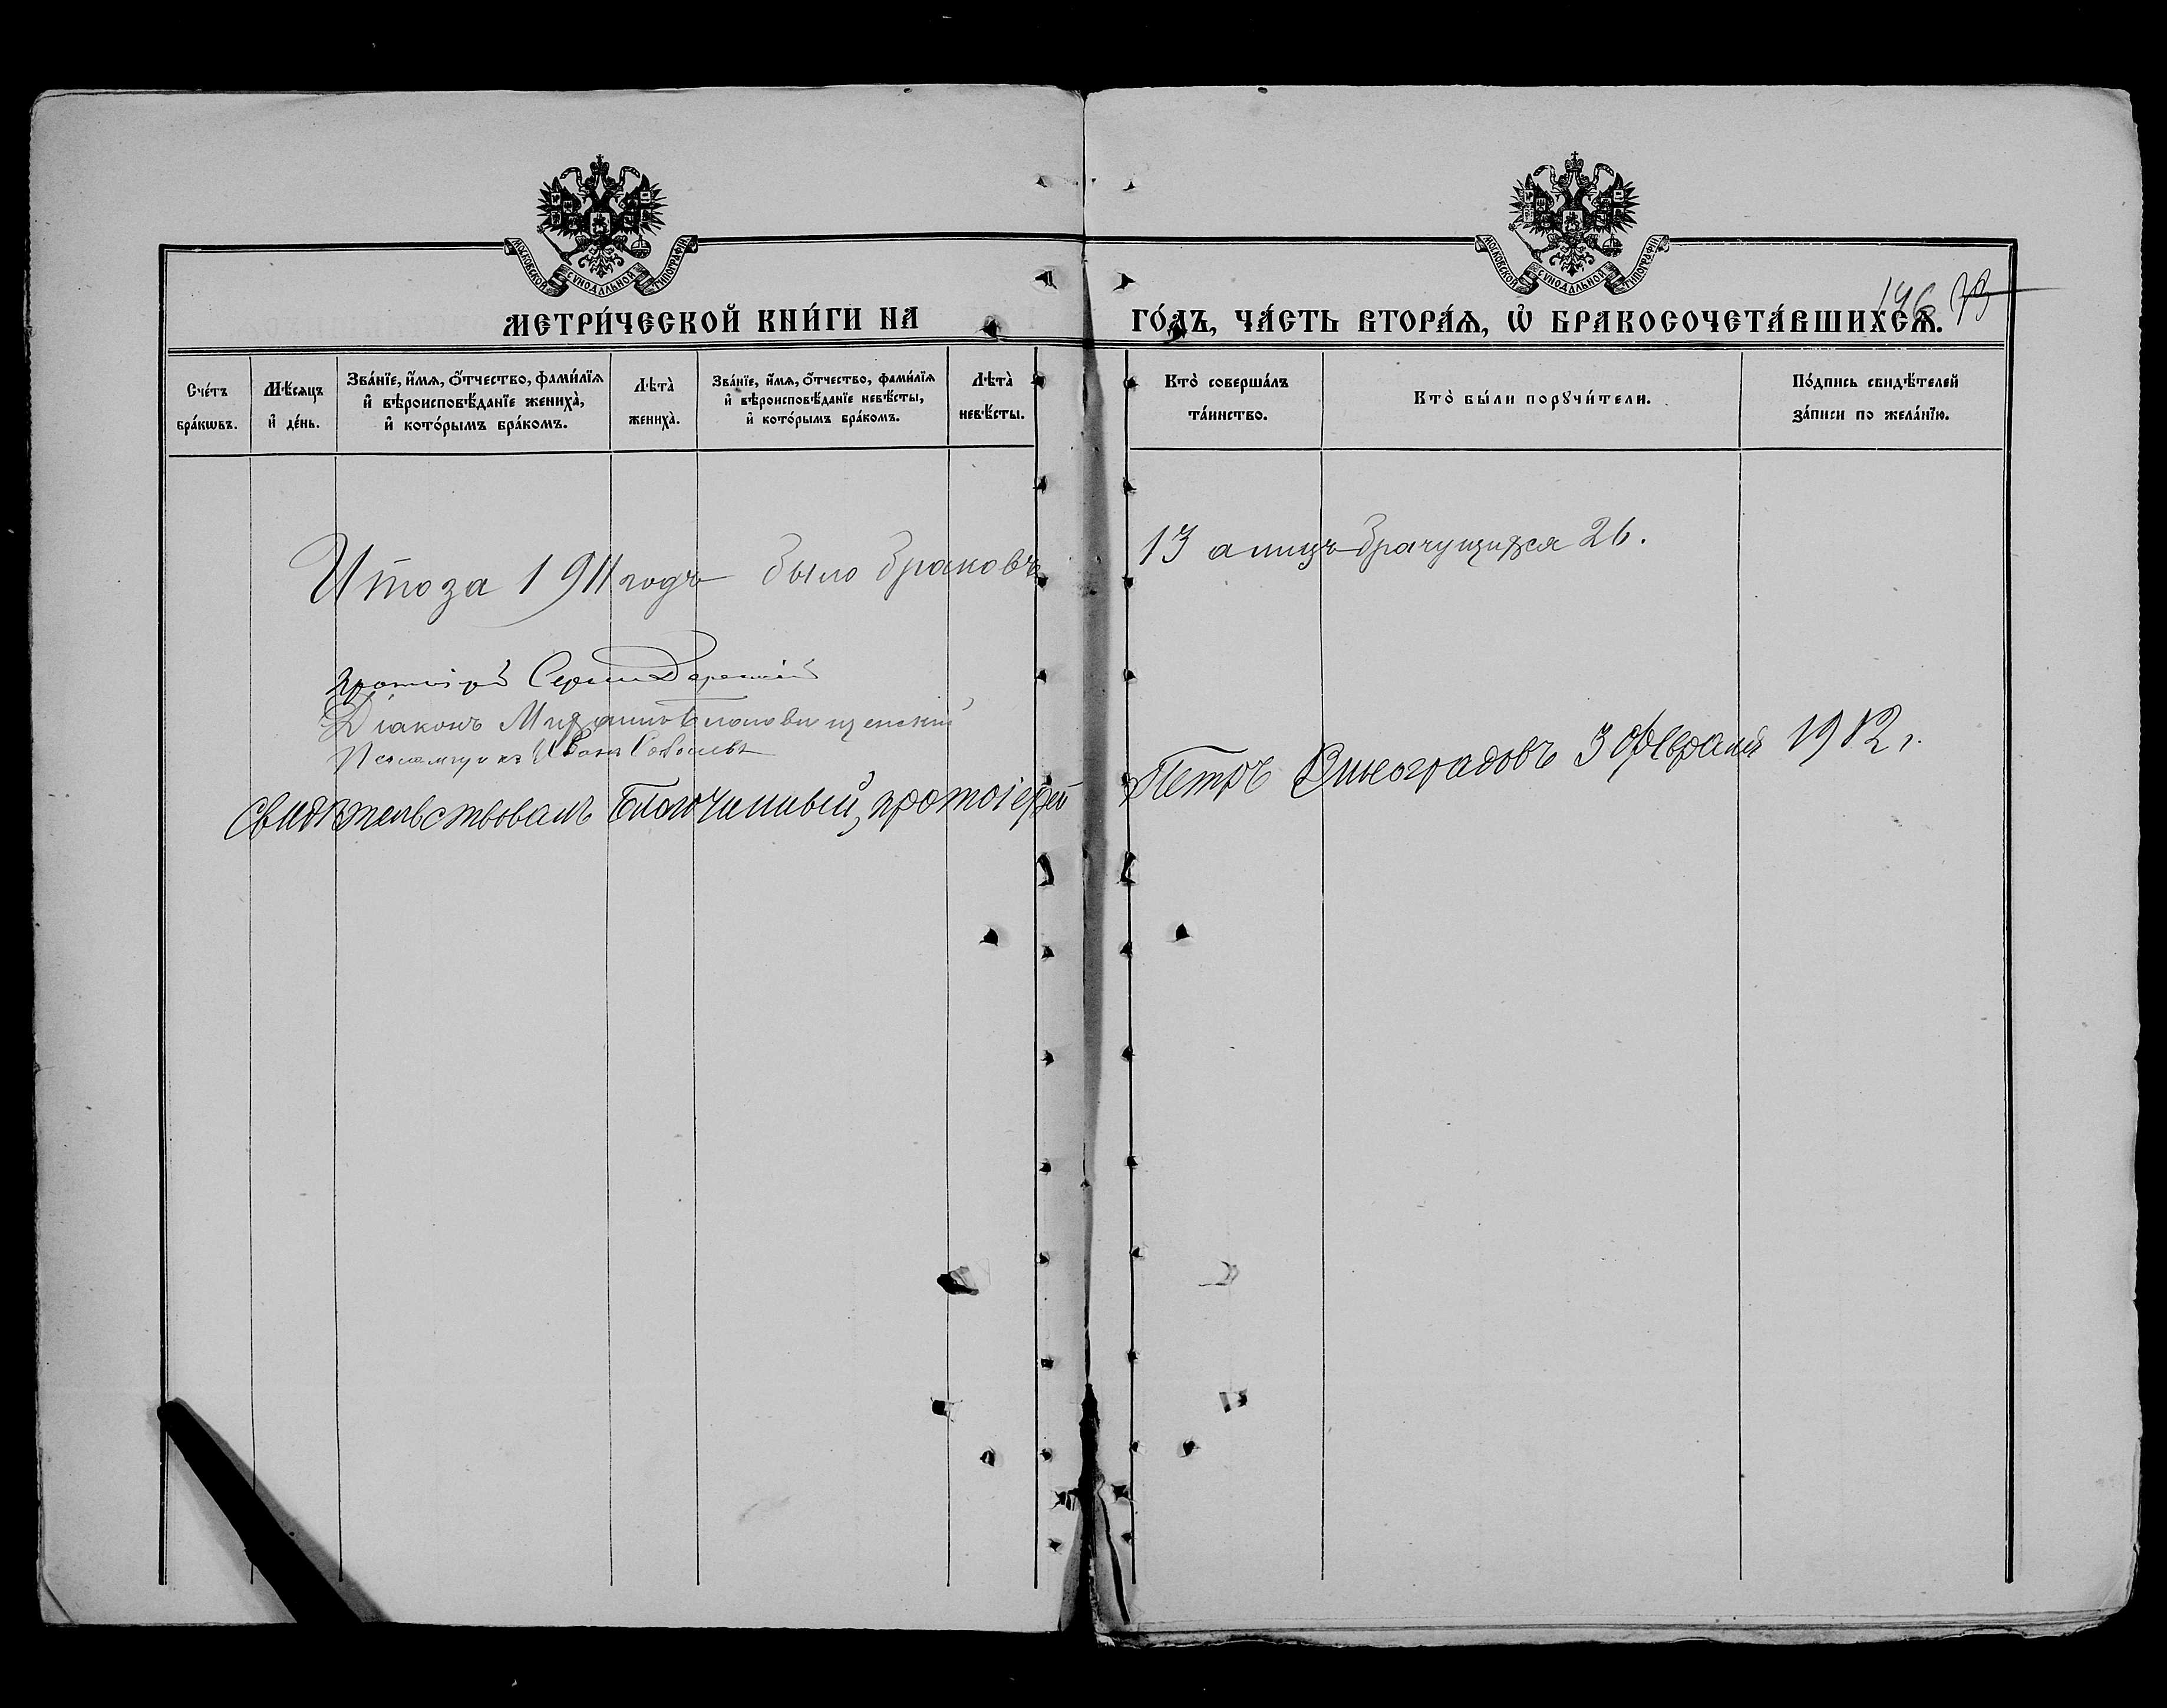 МОСКОВСКОЙ СѴНОДАЛЬНОЙ ТИПОГРАФІИ
МОСКОВСКОЙ СѴНОДАЛЬНОЙ ТИПОГРАФІИ
146 73
МЕТРИ́ЧЕСКОЙ КНИ́ГИ НА ГО́ДЪ, ЧА́СТЬ ВТОРА́Ѧ, Ѽ БРАКОСОЧЕТА́ВШИХСѦ.
Сче́тъ
бра́кѡвъ.
Мѣ́сѧцъ
и҆ де́нь.
Зва́нїе, и҆́мѧ, ѻ҆́тчество, фами́лїѧ
и҆ вѣроисповѣ́данїе жениха̀,
и҆ кото́рымъ бра́комъ.
Лѣта̀
жениха̀.
Зва́нїе, и҆́мѧ, ѻ҆́тчество, фами́лїѧ
и҆ вѣроисповѣ́данїе невѣ́сты,
и҆ кото́рымъ бра́комъ.
Лѣта̀
невѣ́сты.
Кто̀ соверша́лъ
та́инство.
Кто̀ бы́ли порꙋчи́тели.
По́дпись свидѣ́телей
за́писи по жела́нїю.
Итого за 1911 годъ было браковъ 13 а лицъ брачущихся 26.
протоіерей Сергій
Діаконъ Михаилъ Благовѣщенскій
Псаломщикъ Иванъ Соболевъ
Свидѣтельствовалъ Благочинный, протоіерей Петръ Виноградовъ 3 Февраля 1912 г.